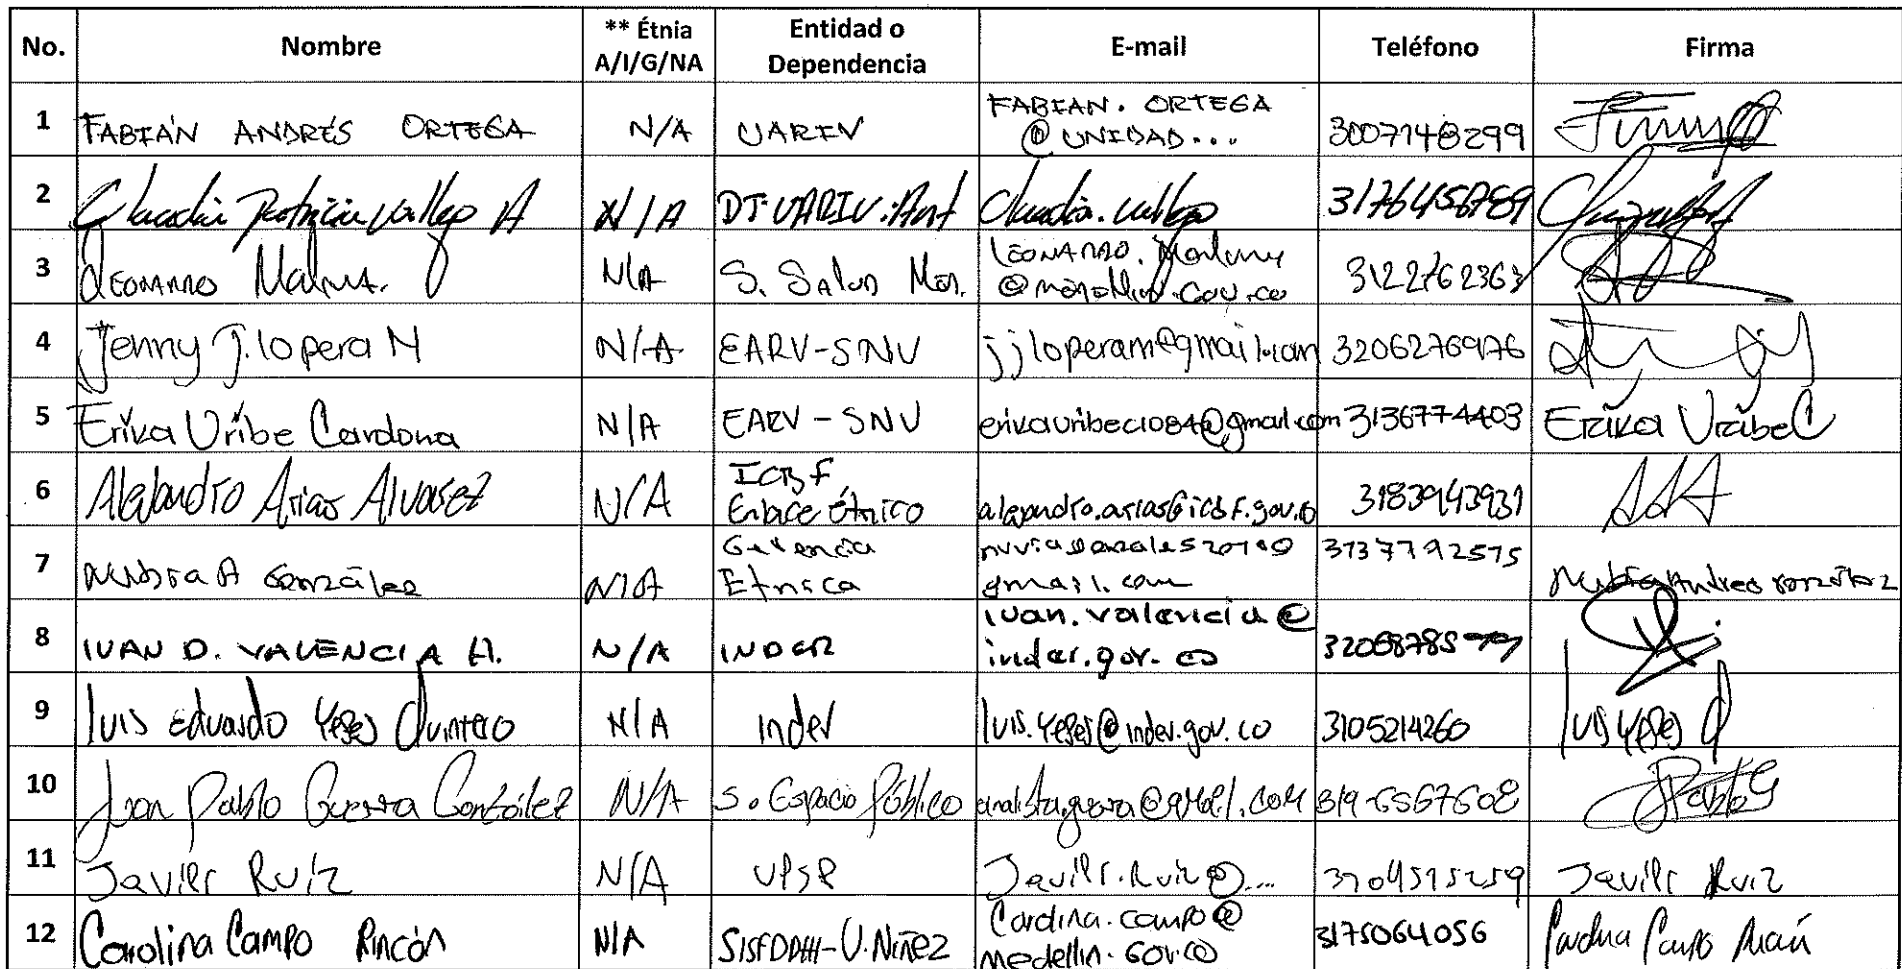 No. Nombre ** Étnia A/I/G/NA Entidad o Dependencia E-mail Teléfono Firma
1 FABIÁN ANDRÉS ORTEGA N/A UARIV FABIAN. ORTEGA @ UNIDAD... 3007148299
2 Claudia Patricia Vallejo A N/A DT-UARIV-Ant Claudia.vallejo 3176456789
3 LEONARDO N/A S. SALUD MED. 3122762363
4 Jenny J. lopera M N/A EARV-SNV jjloperam@gmail.com 3206276976
5 Erika Uribe Cardona N/A EARV-SNV erikauribec1084@gmail.com 3136774403 Erika Uribe C
6 Alejandro Arias Alvarez N/A ICBF Enlace étnico alejandro.arias@icbf.gov.co 3183943931 AAA
7 Nubia A González N/A Gerencia Etnica gmail.com 3137792575 Nubia Andrea González
8 IVAN D. VALENCIA H. N/A INDER ivan.valencia@ inder.gov.co
9 luis Eduardo Yepes Quintero N/A inder luis.yepes@inder.gov.co 3105214260 luis yepes Q
10 Juan Pablo Guerra González N/A S. Espacio Público analistaguerra@gmail.com 319-6567608 Pablo G
11 Javier Ruiz N/A UPSE Javier.Ruiz@... Javier Ruiz
12 Carolina Campo Rincón N/A U. Niñez Carolina.campo@ medellin.gov.co 3175064056 Carolina Campo Rincón